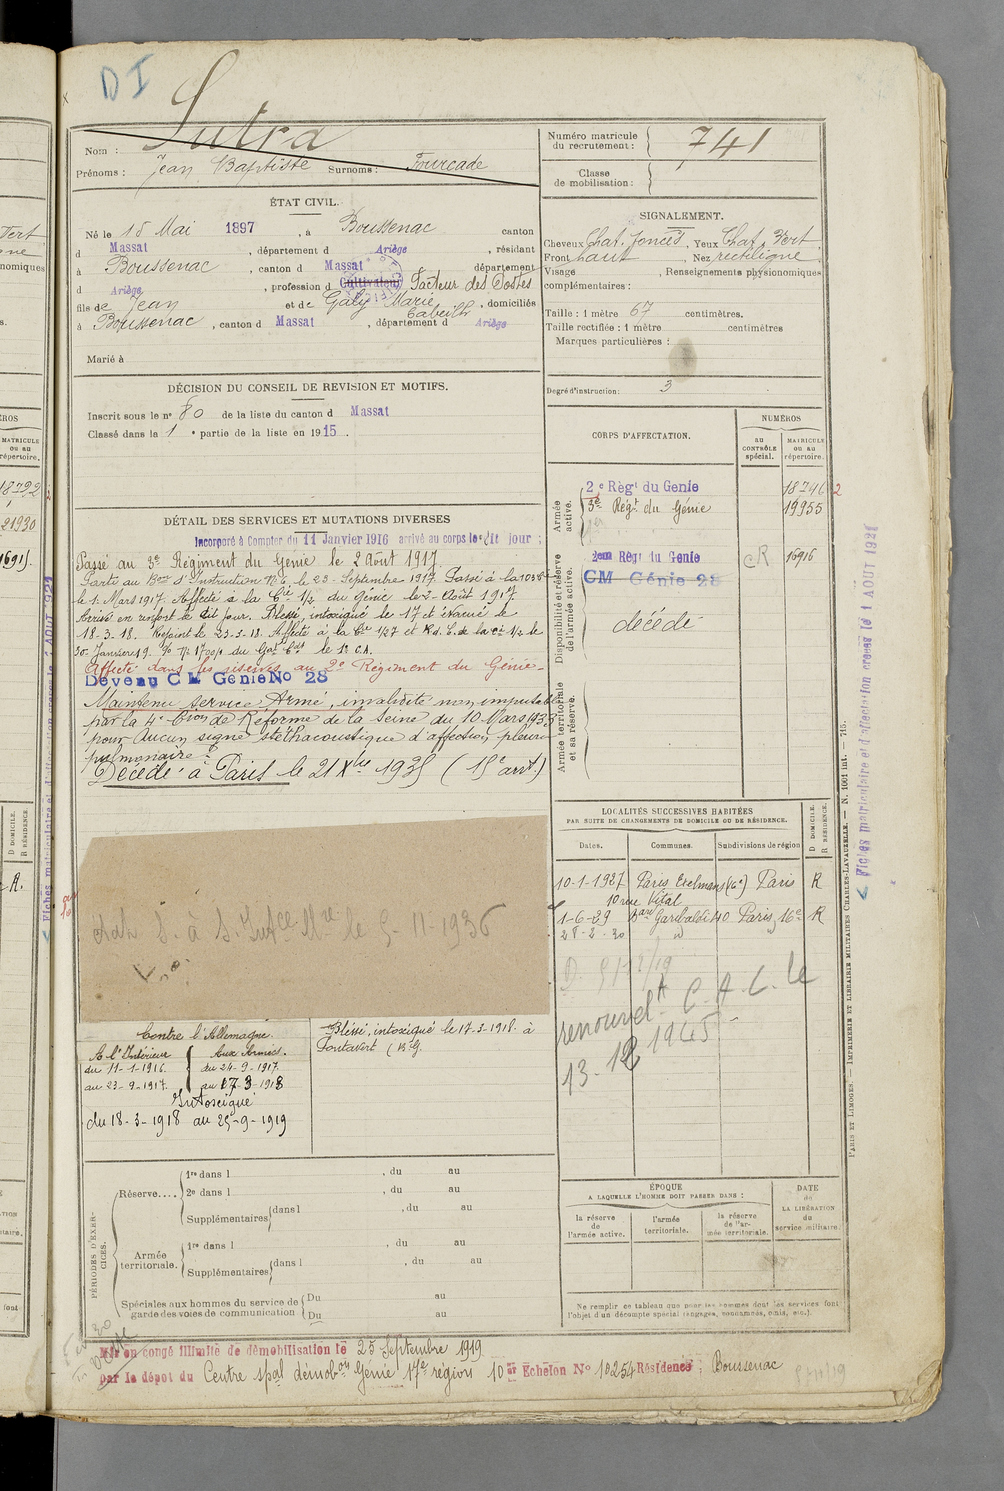 D I
Sutra
Nom :
Prénoms : Jean Baptiste Surnoms : Fourcade
Numéro matricule du recrutement : 741
Classe de mobilisation :
ÉTAT CIVIL.
Né le 15 Mai 1897, à Boussenac canton
d Massat, département d Ariège, résidant
à Boussenac, canton d Massat département
d Ariège, profession d Cultivateur Facteur des Postes
fils de Jean et de Galy Marie
à Boussenac, canton d Massat, département d Ariège, domiciliés
Marié à
SIGNALEMENT.
Cheveux Chat. foncés, Yeux Chat. Vert
Front haut, Nez rectiligne
Visage , Renseignements physionomiques
complémentaires :
Taille : 1 mètre 67 centimètres.
Taille rectifiée : 1 mètre centimètres
Marques particulières :
Degré d'instruction : 3
DÉCISION DU CONSEIL DE REVISION ET MOTIFS.
Inscrit sous le n° 80 de la liste du canton d Massat
Classé dans la 1 e partie de la liste en 1915.
CORPS D'AFFECTATION.
NUMÉROS
au CONTRÔLE spécial.
MATRICULE ou au répertoire.
Armée active.
2e Régt du Genie 18746
3e Régt du Génie 19955
Disponibilité et réserve de l'armée active.
2eme Régt du Genie CR 16916
CM Génie 28
décédé
Armée territoriale et sa réserve.
DÉTAIL DES SERVICES ET MUTATIONS DIVERSES
Incorporé à Compter du 11 Janvier 1916 arrivé au corps le dit jour :
Passé au 3e Régiment du Génie le 2 Août 1917.
Parti au Bon d'Instruction N° 6 le 23 Septembre 1917. Passé à la
le 1. Mars 1917. Affecté à la Cie 1/2 du Génie le 2 Août 1917
Arrivé en renfort le dit jour. Blessé, intoxiqué le 17 et évacué le
18-3-18. Rejoint le 23-3-18. Affecté à la Cie 1/27 et
30 Janvier 19.
Affecté dans les réserves au 2e Régiment du Génie
Devenu C M Génie No 28
Maintenu service Armé, invalidité non imputable
par la 4e Cion de Réforme de la Seine du 10 Mars 1933
pour Aucun signe stéthacoustique d'affection pleuro
pulmonaire
Décédé à Paris le 21 Xbre 1935 (15e arrt.)
LOCALITÉS SUCCESSIVES HABITÉES
PAR SUITE DE CHANGEMENTS DE DOMICILE OU DE RÉSIDENCE.
Dates. Communes. Subdivisions de région
D DOMICILE. R RÉSIDENCE.
10-1-1927 Paris Exelmans Paris R
10 rue Vital
1-6-29 Garibaldi 40 Paris 16e R
28-2-30
renouvelt C.A.C. le
13-12 1945
11-1936
Contre l'Allemagne.
A l'Intérieur
du 11-1-1916.
au 23-9-1917.
Aux Armées.
du 24-9-1917.
au 17-3-1918
Intoxiqué
du 18-3-1918 au 25-9-1919
Blessé, intoxiqué le 17-3-1918. à
Pontavert
PÉRIODES D'EXERCICES.
Réserve....
1re dans l , du au
2e dans l , du au
Supplémentaires dans l , du au
Armée territoriale.
1re dans l , du au
Supplémentaires dans l , du au
Spéciales aux hommes du service de garde des voies de communication
Du au
Du au
ÉPOQUE
A LAQUELLE L'HOMME DOIT PASSER DANS :
la réserve de l'armée active.
l'armée territoriale.
la réserve de l'armée territoriale.
DATE de LA LIBÉRATION du service militaire.
Ne remplir ce tableau que pour les hommes dont les services font
l'objet d'un décompte spécial (engagés, condamnés, omis, etc.).
Mis en congé illimité de démobilisation le 25 Septembre 1919
par le dépot du Centre spal démobon Génie 17e région 10e Echelon No 10254 Résidence : Boussenac
PARIS ET LIMOGES. — IMPRIMERIE ET LIBRAIRIE MILITAIRES CHARLES-LAVAUZELLE. — N. 1001 int. — 715.
Fiches matriculaire et d'affectation creées le 1 AOUT 192
MATRICULE ou au répertoire.
18792
21930
16915